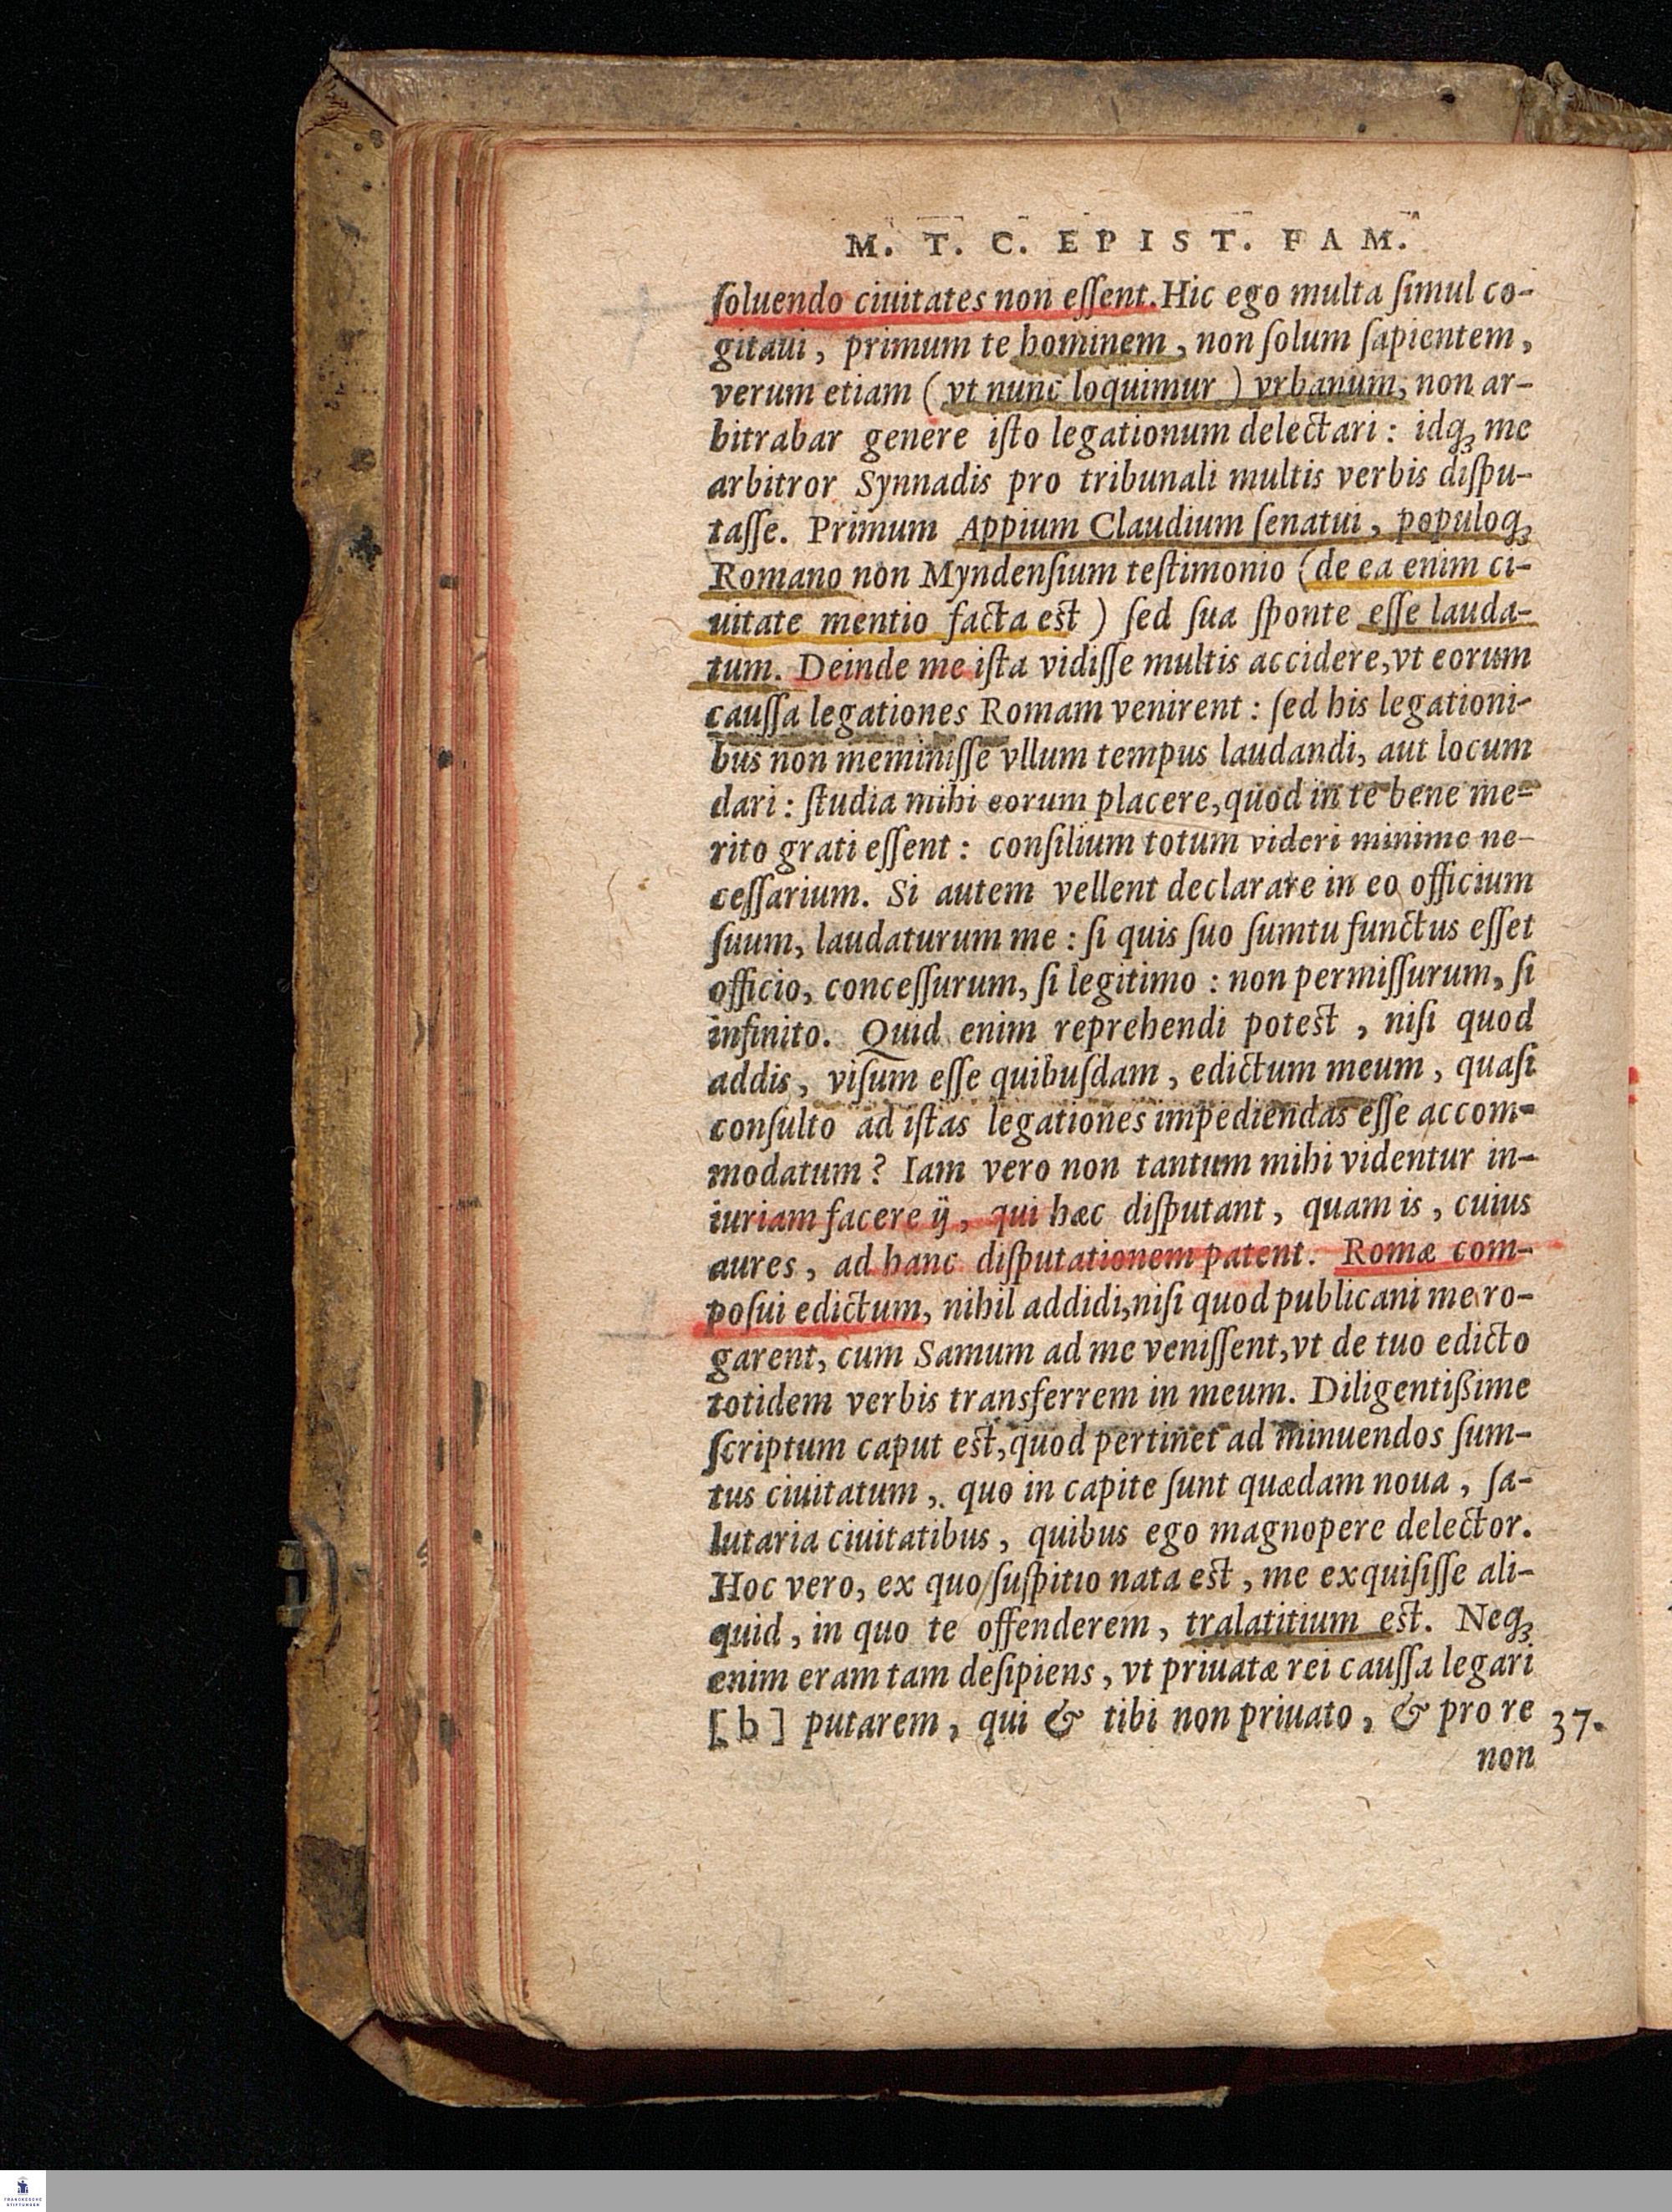 M. T. C. EPIST. FAM.
ſoluendo ciuitates non eſſent. Hic ego multa ſimul co-
gitaui, primum te hominem, non ſolum ſapientem,
verum etiam (vt nunc loquimur) vrbanum, non ar-
bitrabar genere iſto legationum delectari: idqꝫ me
arbitror Synnadis pro tribunali multis verbis diſpu-
taſſe. Primum Appium Claudium ſenatui, populoqꝫ
Romano non Myndenſium teſtimonio (de ea enim ci-
uitate mentio facta est) ſed ſua ſponte eſſe lauda-
tum. Deinde me iſta vidiſſe multis accidere, vt eorum
cauſſa legationes Romam venirent: ſed his legationi-
bus non meminiſſe vllum tempus laudandi, aut locum
dari: ſtudia mihi eorum placere, quòd in te bene me-
rito grati eſſent: conſilium totum videri minime ne-
ceſſarium. Si autem vellent declarare in eo officium
ſuum, laudaturum me: ſi quis ſuo ſumtu functus eſſet
officio, conceſſurum, ſi legitimo: non permiſſurum, ſi
infinito. Quid enim reprehendi potest, niſi quod
addis, viſum eſſe quibuſdam, edictum meum, quaſi
conſulto ad iſtas legationes impediendas eſſe accom-
modatum? Iam vero non tantum mihi videntur in-
iuriam facere ij, qui hæc diſputant, quam is, cuius
aures, ad hanc diſputationem patent. Romæ com-
poſui edictum, nihil addidi, niſi quod publicani me ro-
garent, cum Samum ad me veniſſent, vt de tuo edicto
totidem verbis transferrem in meum. Diligentißime
ſcriptum caput est, quod pertinet ad minuendos ſum-
tus ciuitatum, quo in capite ſunt quædam noua, ſa-
lutaria ciuitatibus, quibus ego magnopere delector.
Hoc vero, ex quo ſuſpitio nata est, me exquiſiſſe ali-
quid, in quo te offenderem, tralatitium est. Neqꝫ
enim eram tam deſipiens, vt priuatæ rei cauſſa legari
[b] putarem, qui & tibi non priuato, & pro re 37.
non
FRANCKESCHE
STIFTUNGEN